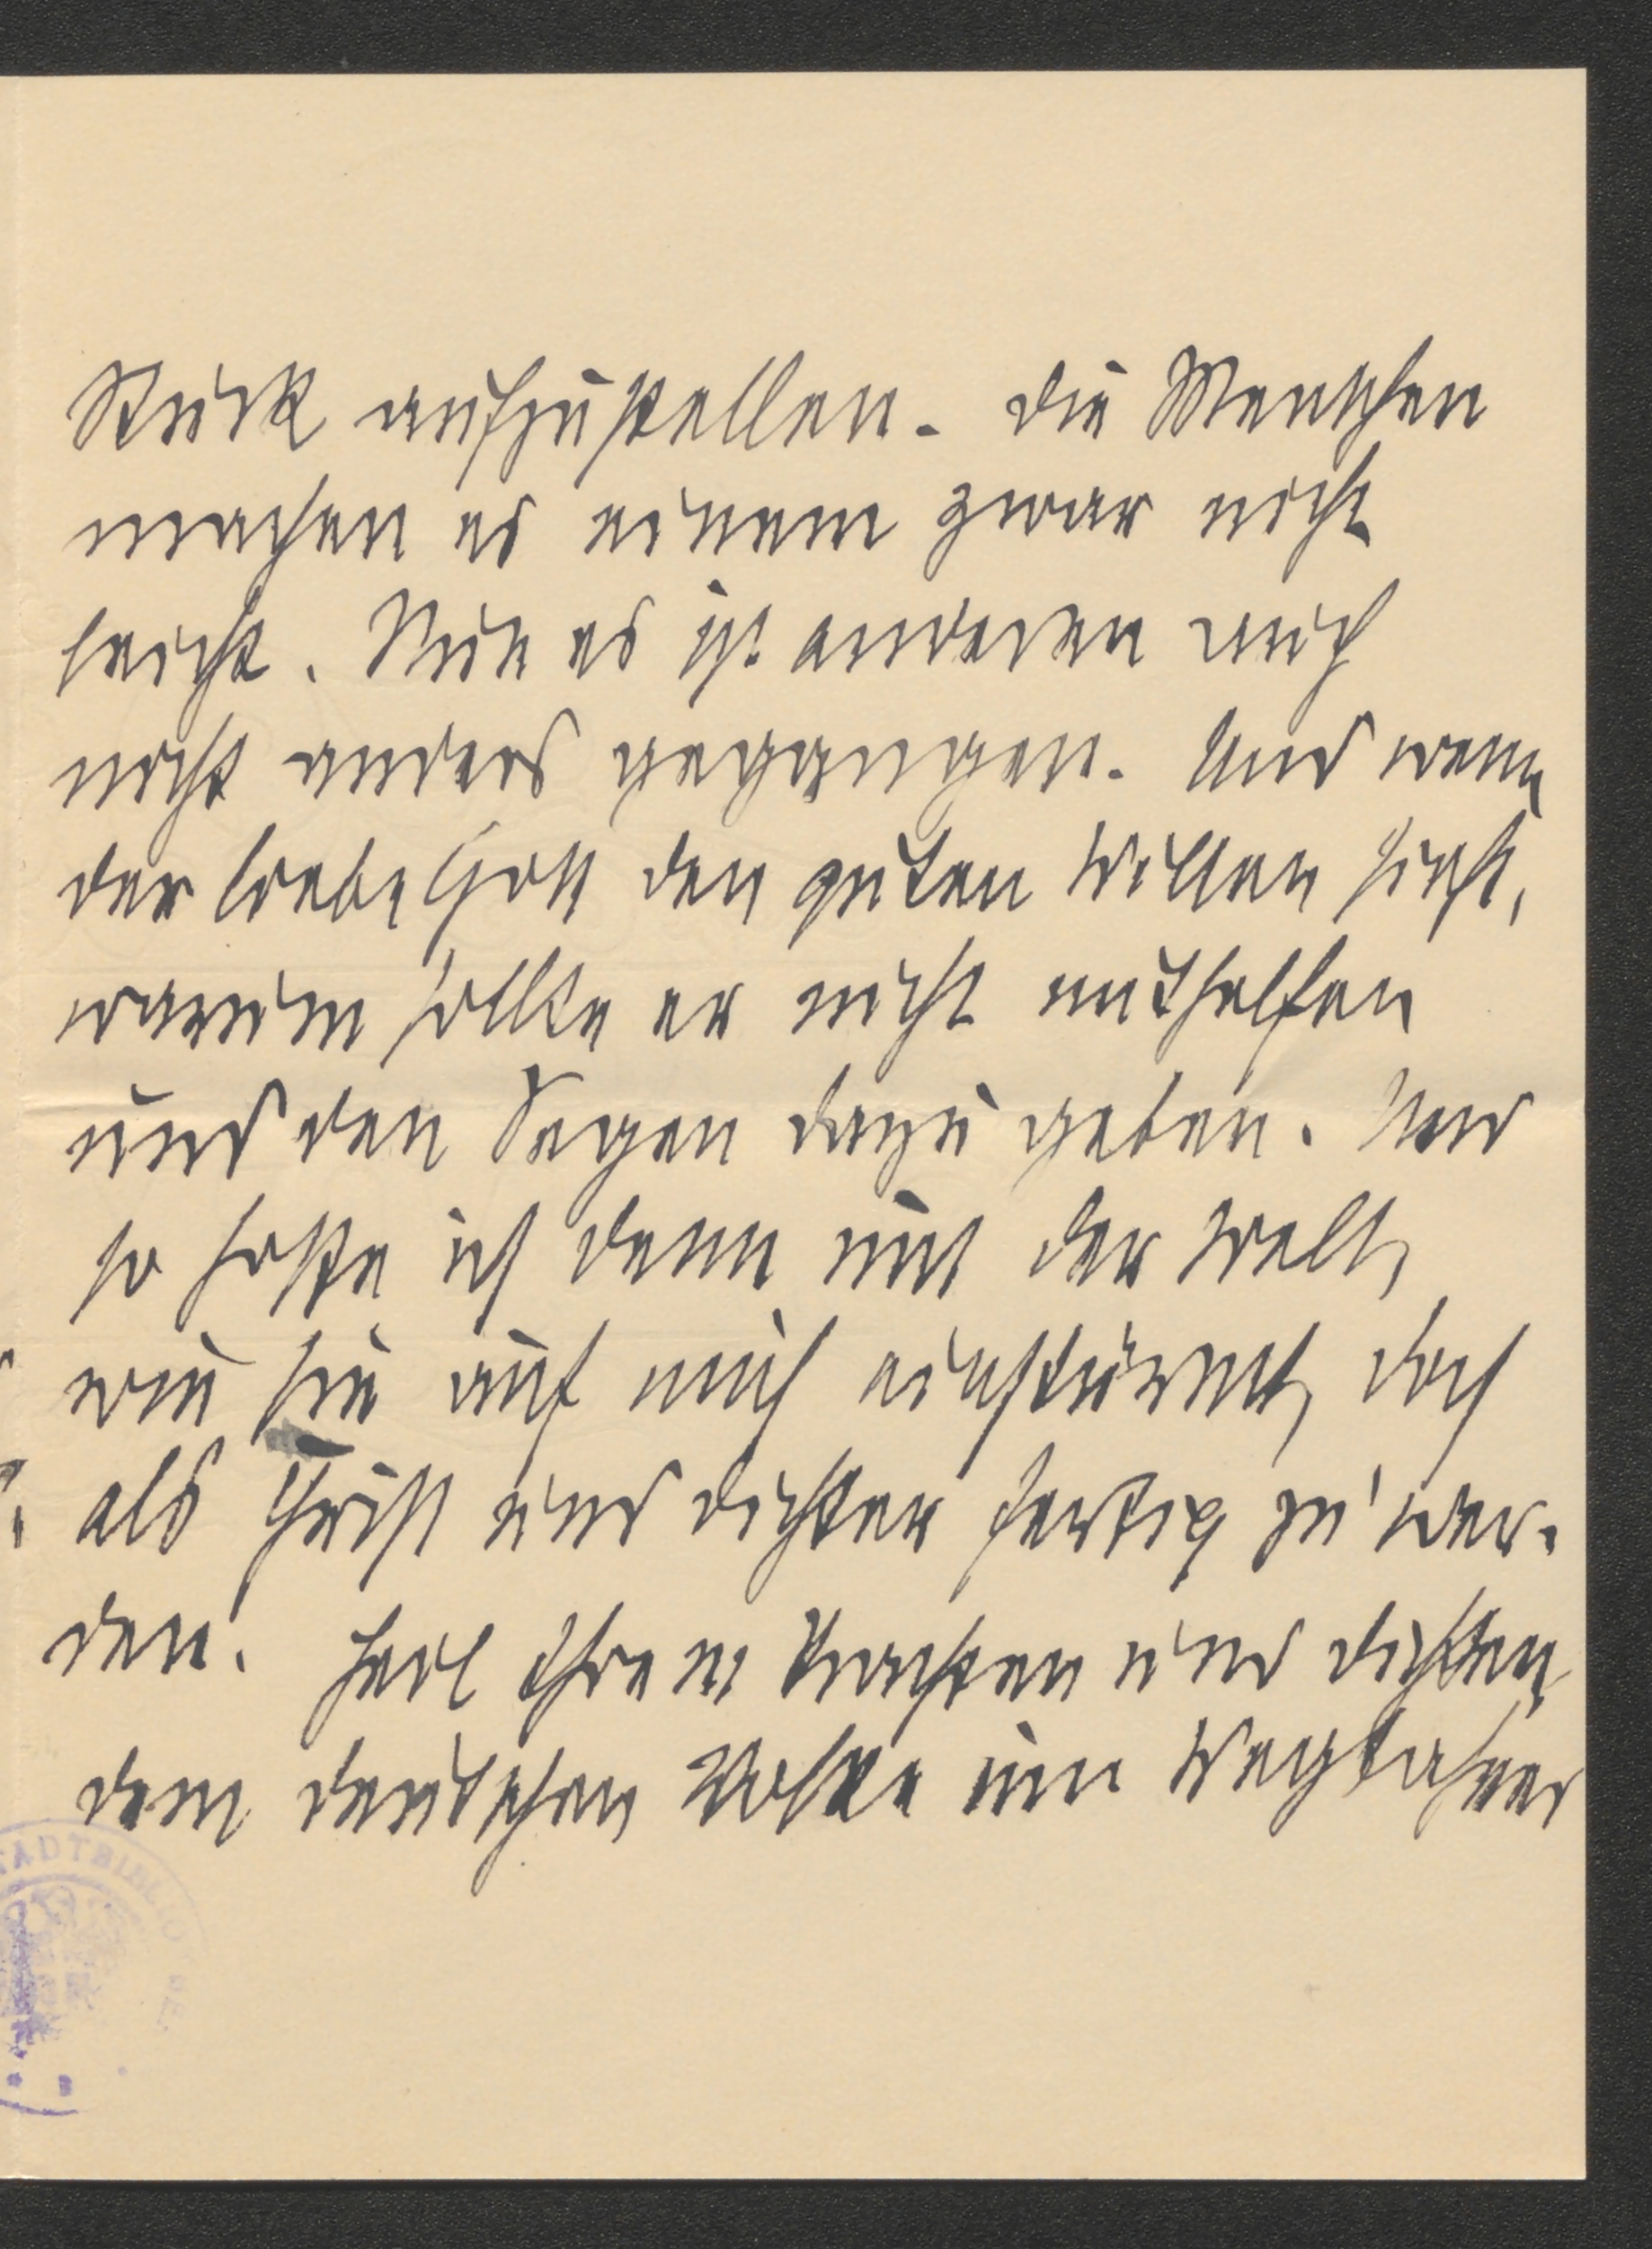 Stück aufzustellen. Die Menschen
machen es einem zwar nicht
leicht. Nun es ist anderen auch
nicht anders gegangen. Und wenn
der liebe Gott den guten Willen sieht,
warum sollte er nicht mithelfen
und den Segen dazu geben. Und
so hoffe ich denn mit der Welt,
wie sie auf mich einstürmt, doch
als Christ und Dichter fertig zu wer-
den. Heil Ihrem Trachten und Dichten,
dem deutschen Volke ein
STADTBIBLIOT